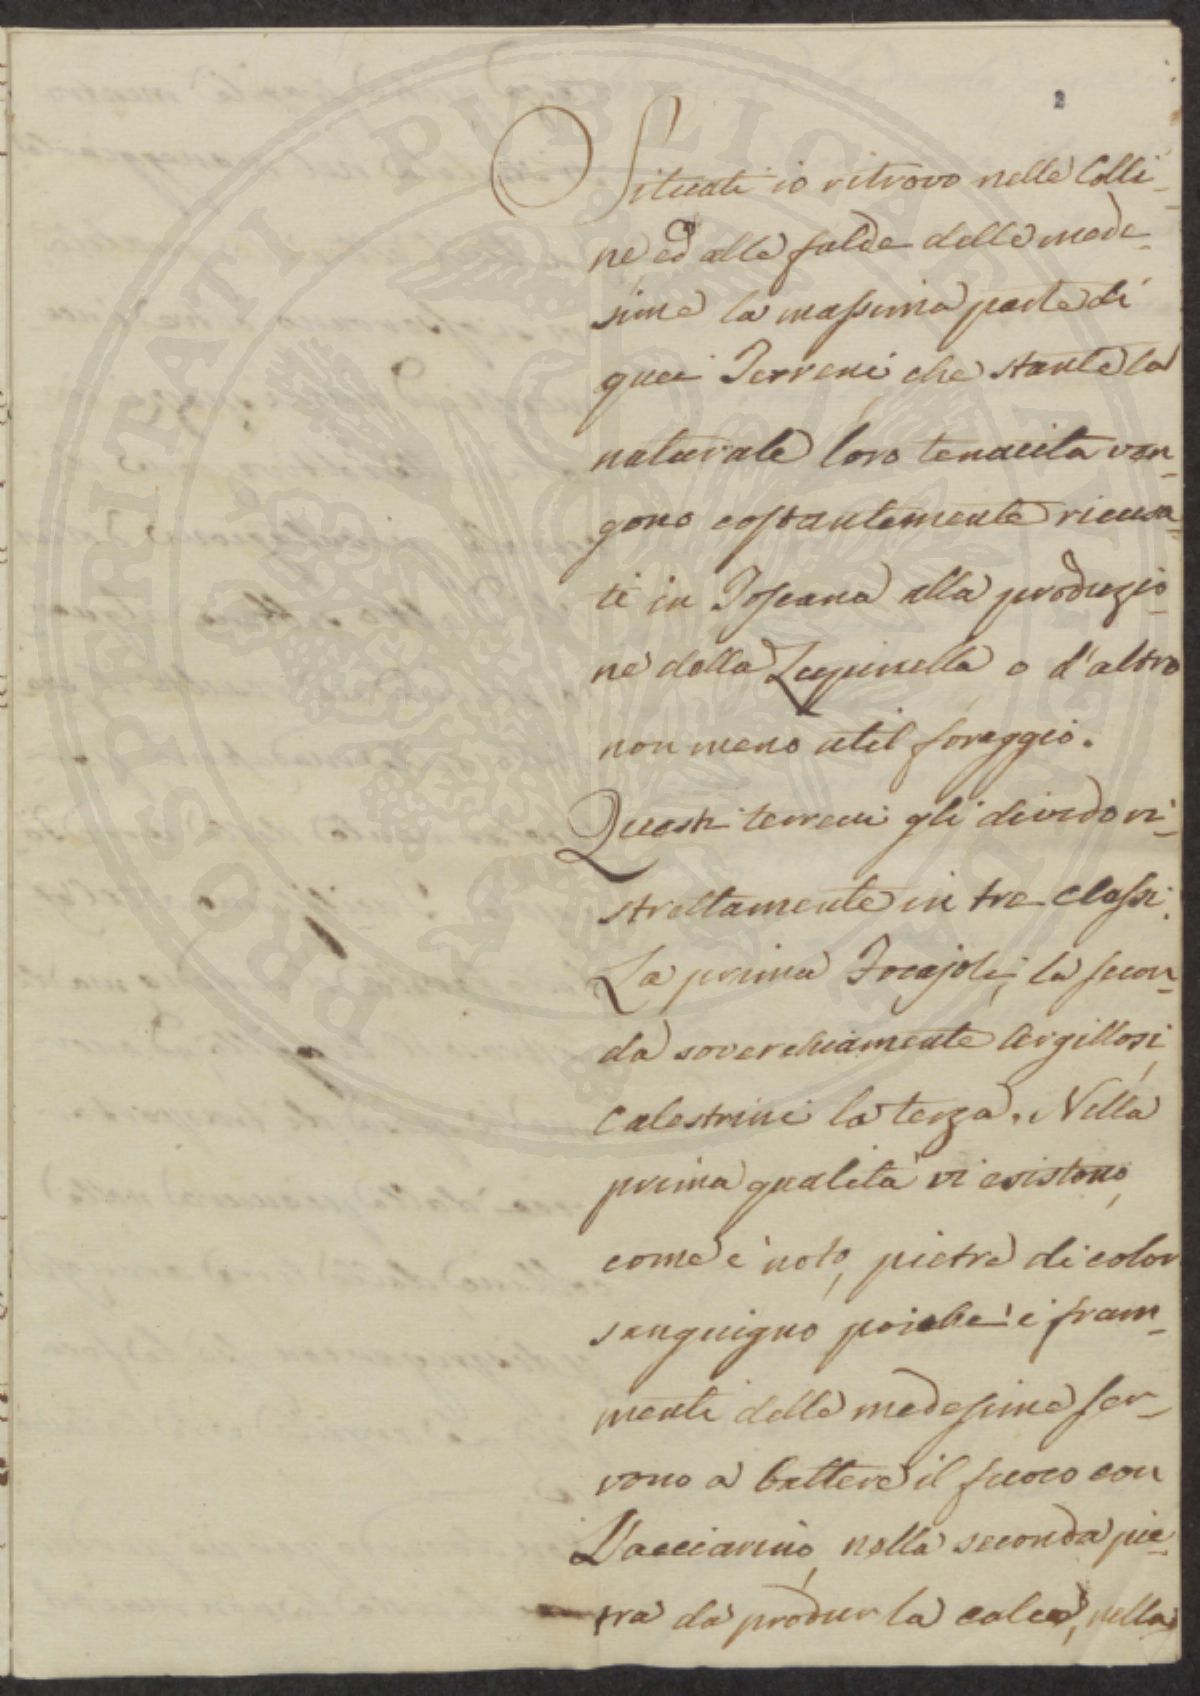 2
Situati io ritrovo nelle Colli-
ne ed alle falde delle mede-
sime la massima parte di
quei Terreni, che stante la
naturale loro tenacità ven-
gono costantemente ricusa-
ti in Toscana alla produzio-
ne della Lupinella o d'altro
non meno util foraggio.
Questi terreni gli divido ri-
strettamente in tre Classi.
La prima Focajoli, la secon-
da soverchiamente Argillosi,
Calestrini la terza. Nella
prima qualità vi esistono,
come è noto, pietre di color
sanguigno poichè i fram-
menti delle medesime ser-
vono a battere il fuoco con
L'acciarino, nella seconda pie-
tra da produr la calce, nella
PROSPERITATI PUBLICAE AUGENDAE